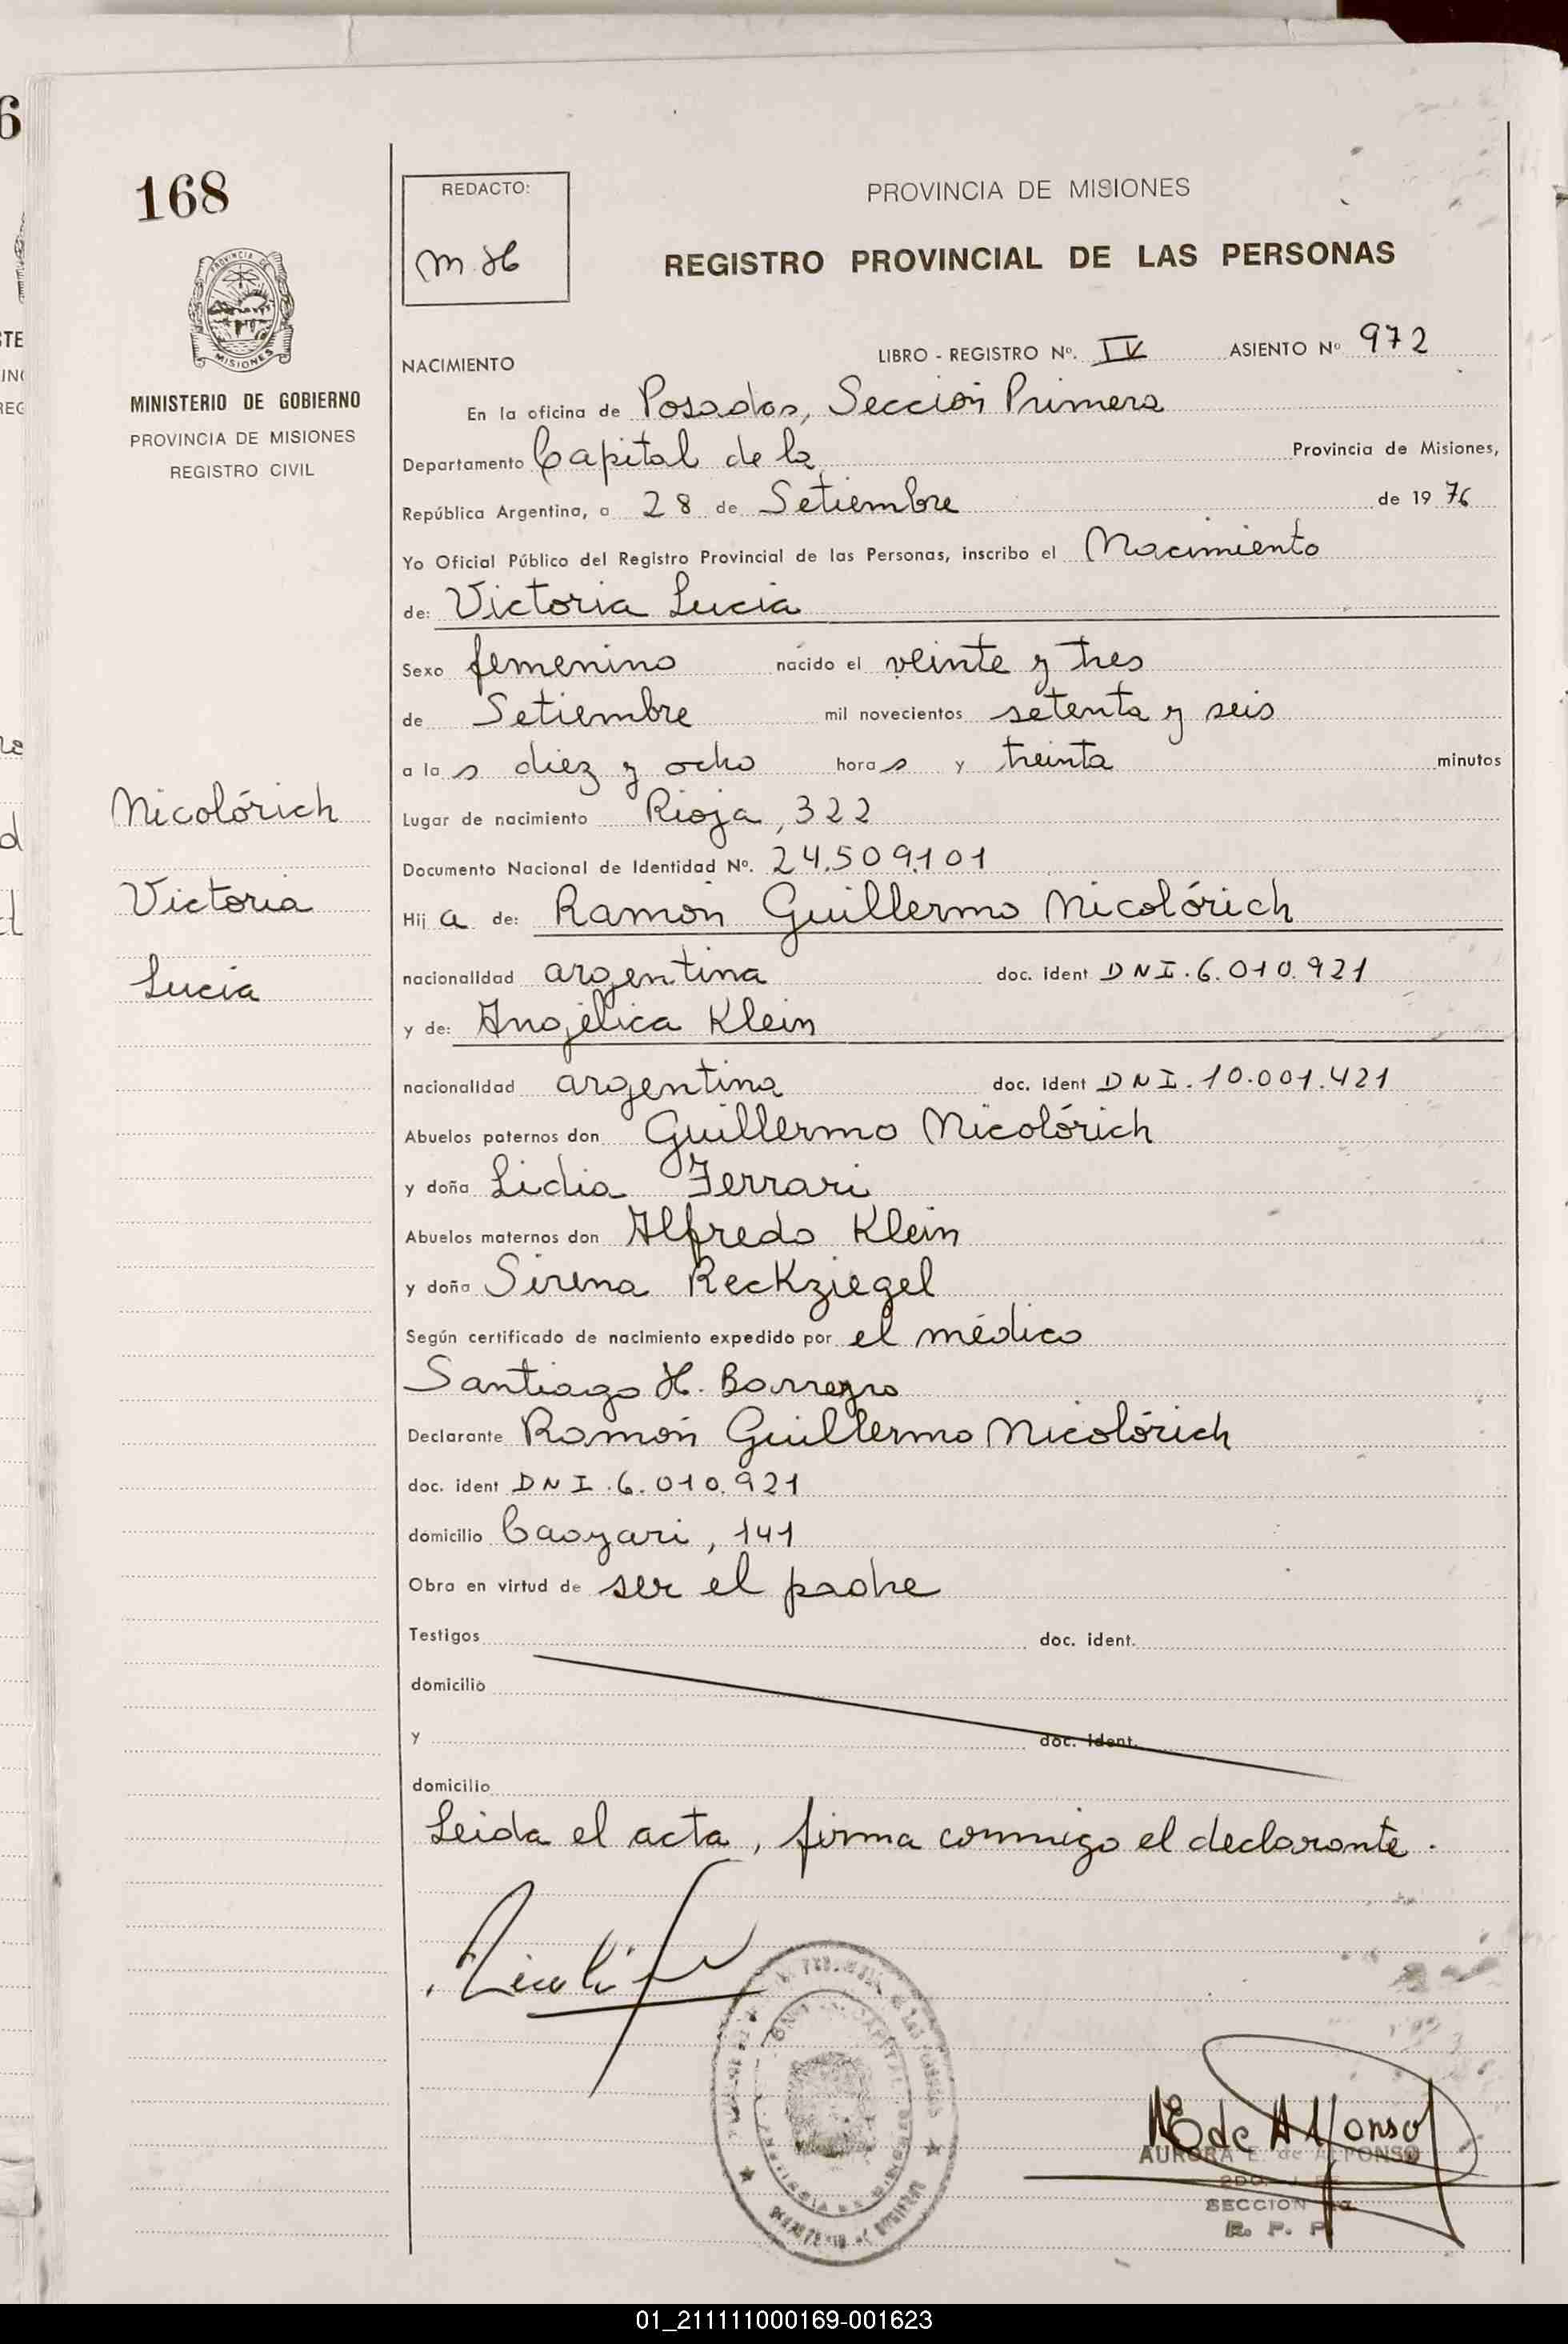 168
PROVINCIA DE MISIONES
MINISTERIO DE GOBIERNO
PROVINCIA DE MISIONES
REGISTRO CIVIL
Nicolórich
Victoria
Lucia
REDACTO:
M. H
PROVINCIA DE MISIONES
REGISTRO PROVINCIAL DE LAS PERSONAS
NACIMIENTO LIBRO - REGISTRO Nº. IV ASIENTO Nº 972
En la oficina de Posadas, Sección Primera
Departamento Capital de la Provincia de Misiones,
República Argentina, a 28 de Setiembre de 1976
Yo Oficial Público del Registro Provincial de las Personas, inscribo el Nacimiento
de: Victoria Lucia
Sexo femenino nacido el veinte y tres
de Setiembre mil novecientos setenta y seis
a las diez y ocho horas y treinta minutos
Lugar de nacimiento Rioja, 322
Documento Nacional de Identidad Nº. 24.509.101
Hija de: Ramón Guillermo Nicolórich
nacionalidad argentina doc. ident DNI. 6.010.921
y de: Angélica Klein
nacionalidad argentina doc. ident DNI. 10.001.421
Abuelos paternos don Guillermo Nicolórich
y doña Lidia Ferrari
Abuelos maternos don Alfredo Klein
y doña Sirena Reckziegel
Según certificado de nacimiento expedido por el médico
Santiago H. Barreyro
Declarante Ramón Guillermo Nicolórich
doc. ident DNI. 6.010.921
domicilio Caazari, 141
Obra en virtud de ser el padre
Testigos doc. ident.
domicilio
y doc. ident.
domicilio
Leida el acta, firma conmigo el declarante.
AE de Alfonso
AURORA E. de ALFONSO
SECCION
R. P. P.
01_211111000169-001623